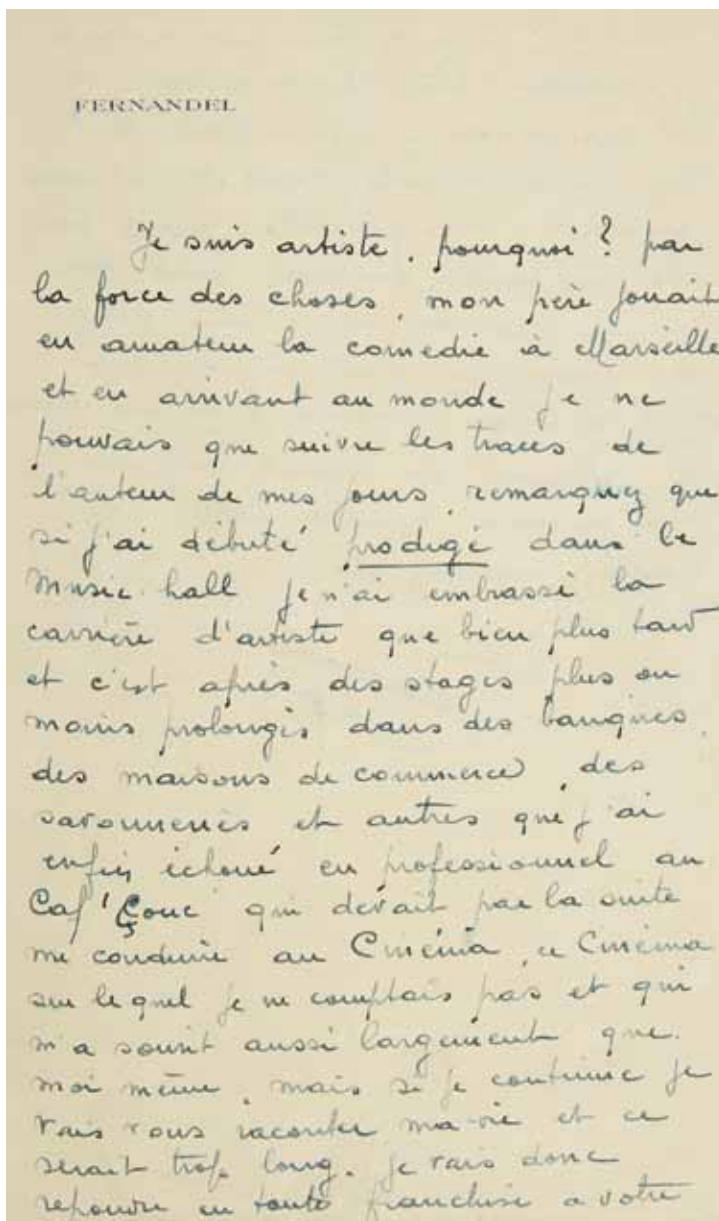 FERNANDEL
Je suis artiste, pourquoi ? par
la force des choses, mon père jouait
en amateur la comedie à Marseille
et en arrivant au monde je ne
pouvais que suivre les traces de
l'auteur de mes jours, remarquez que
si j'ai débuté prodige dans le
Music-hall je n'ai embrassé la
carrière d'artiste que bien plus tard
et c'est après des stages plus ou
moins prolongés dans des banques,
des maisons de commerce, des
savonneries et autres que j'ai
enfin échoué en professionnel au
Caf' Conc' qui devait par la suite
me conduire au Cinéma, ce Cinéma
sur lequel je ne comptais pas et qui
m'a sourit aussi largement que
moi même, mais si je continue je
vais vous raconter ma vie et ce
serait trop long. Je vais donc
repondre en toute franchise a votre